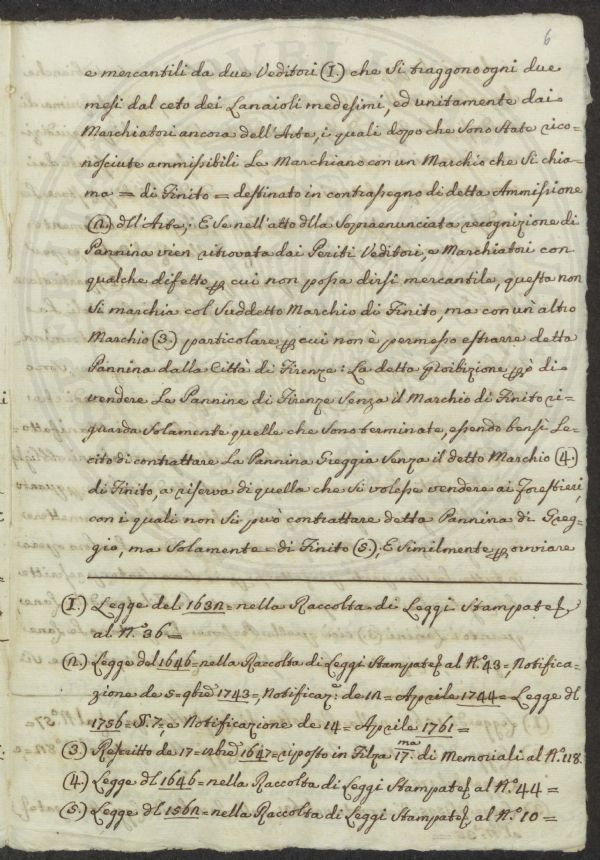 6
e mercantili da due Veditori (1.) che si traggono ogni due
mesi dal ceto dei Lanaioli medesimi, ed unitamente dai
Marchiatori ancora dell'Arte, i quali dopo che sono state rico=
nosciute ammissibili Le Marchiano con un Marchio che si chia=
ma = di Finito = destinato in contrassegno di detta Ammissione
(2.) dll'Arte; E se nell'atto dlla sopraenunciata recognizione di
Pannina vien ritrovata dai Periti Veditori, e Marchiatori con
qualche difetto, p cui non possa dirsi mercantile, questa non
si marchia col suddetto Marchio di Finito, ma con un'altro
Marchio (3.) particolare p cui non è permesso estrarre detta
Pannina dalla Città di Firenze: La detta proibizione pò di
vendere Le Pannine di Firenze senza il Marchio di Finito ri=
guarda solamente quelle che sono terminate, essendo bensì Le=
cito di contrattare La Pannina Greggia senza il detto Marchio (4.)
di Finito, a riserva di quella che si volesse vendere ai Forestieri,
con i quali non si può contrattare detta Pannina di Greg=
gio, ma solamente = di Finito (5.), E similmente p ovviare
(1.) Legge del 1632 = nella Raccolta di Leggi Stampate
al N.° 36 =
(2.) Legge del 1646 = nella Raccolta di Leggi Stampate al N.° 43 =, Notifica=
zione de 5 = 9bre 1743 =, Notificaz.e de 12 = Aprile 1744 = Legge dl
1756 = §. 7, e Notificazione de 14 = Aprile 1761 =
(3.) Rescritto de 17 = xbre 1647 = riposto in Filza 17.ma di Memoriali al N.° 118.
(4.) Legge dl 1646 = nella Raccolta di Leggi Stampate al N.° 44 =
(5.) Legge dl 1562 = nella Raccolta di Leggi Stampate al N.° 10 =